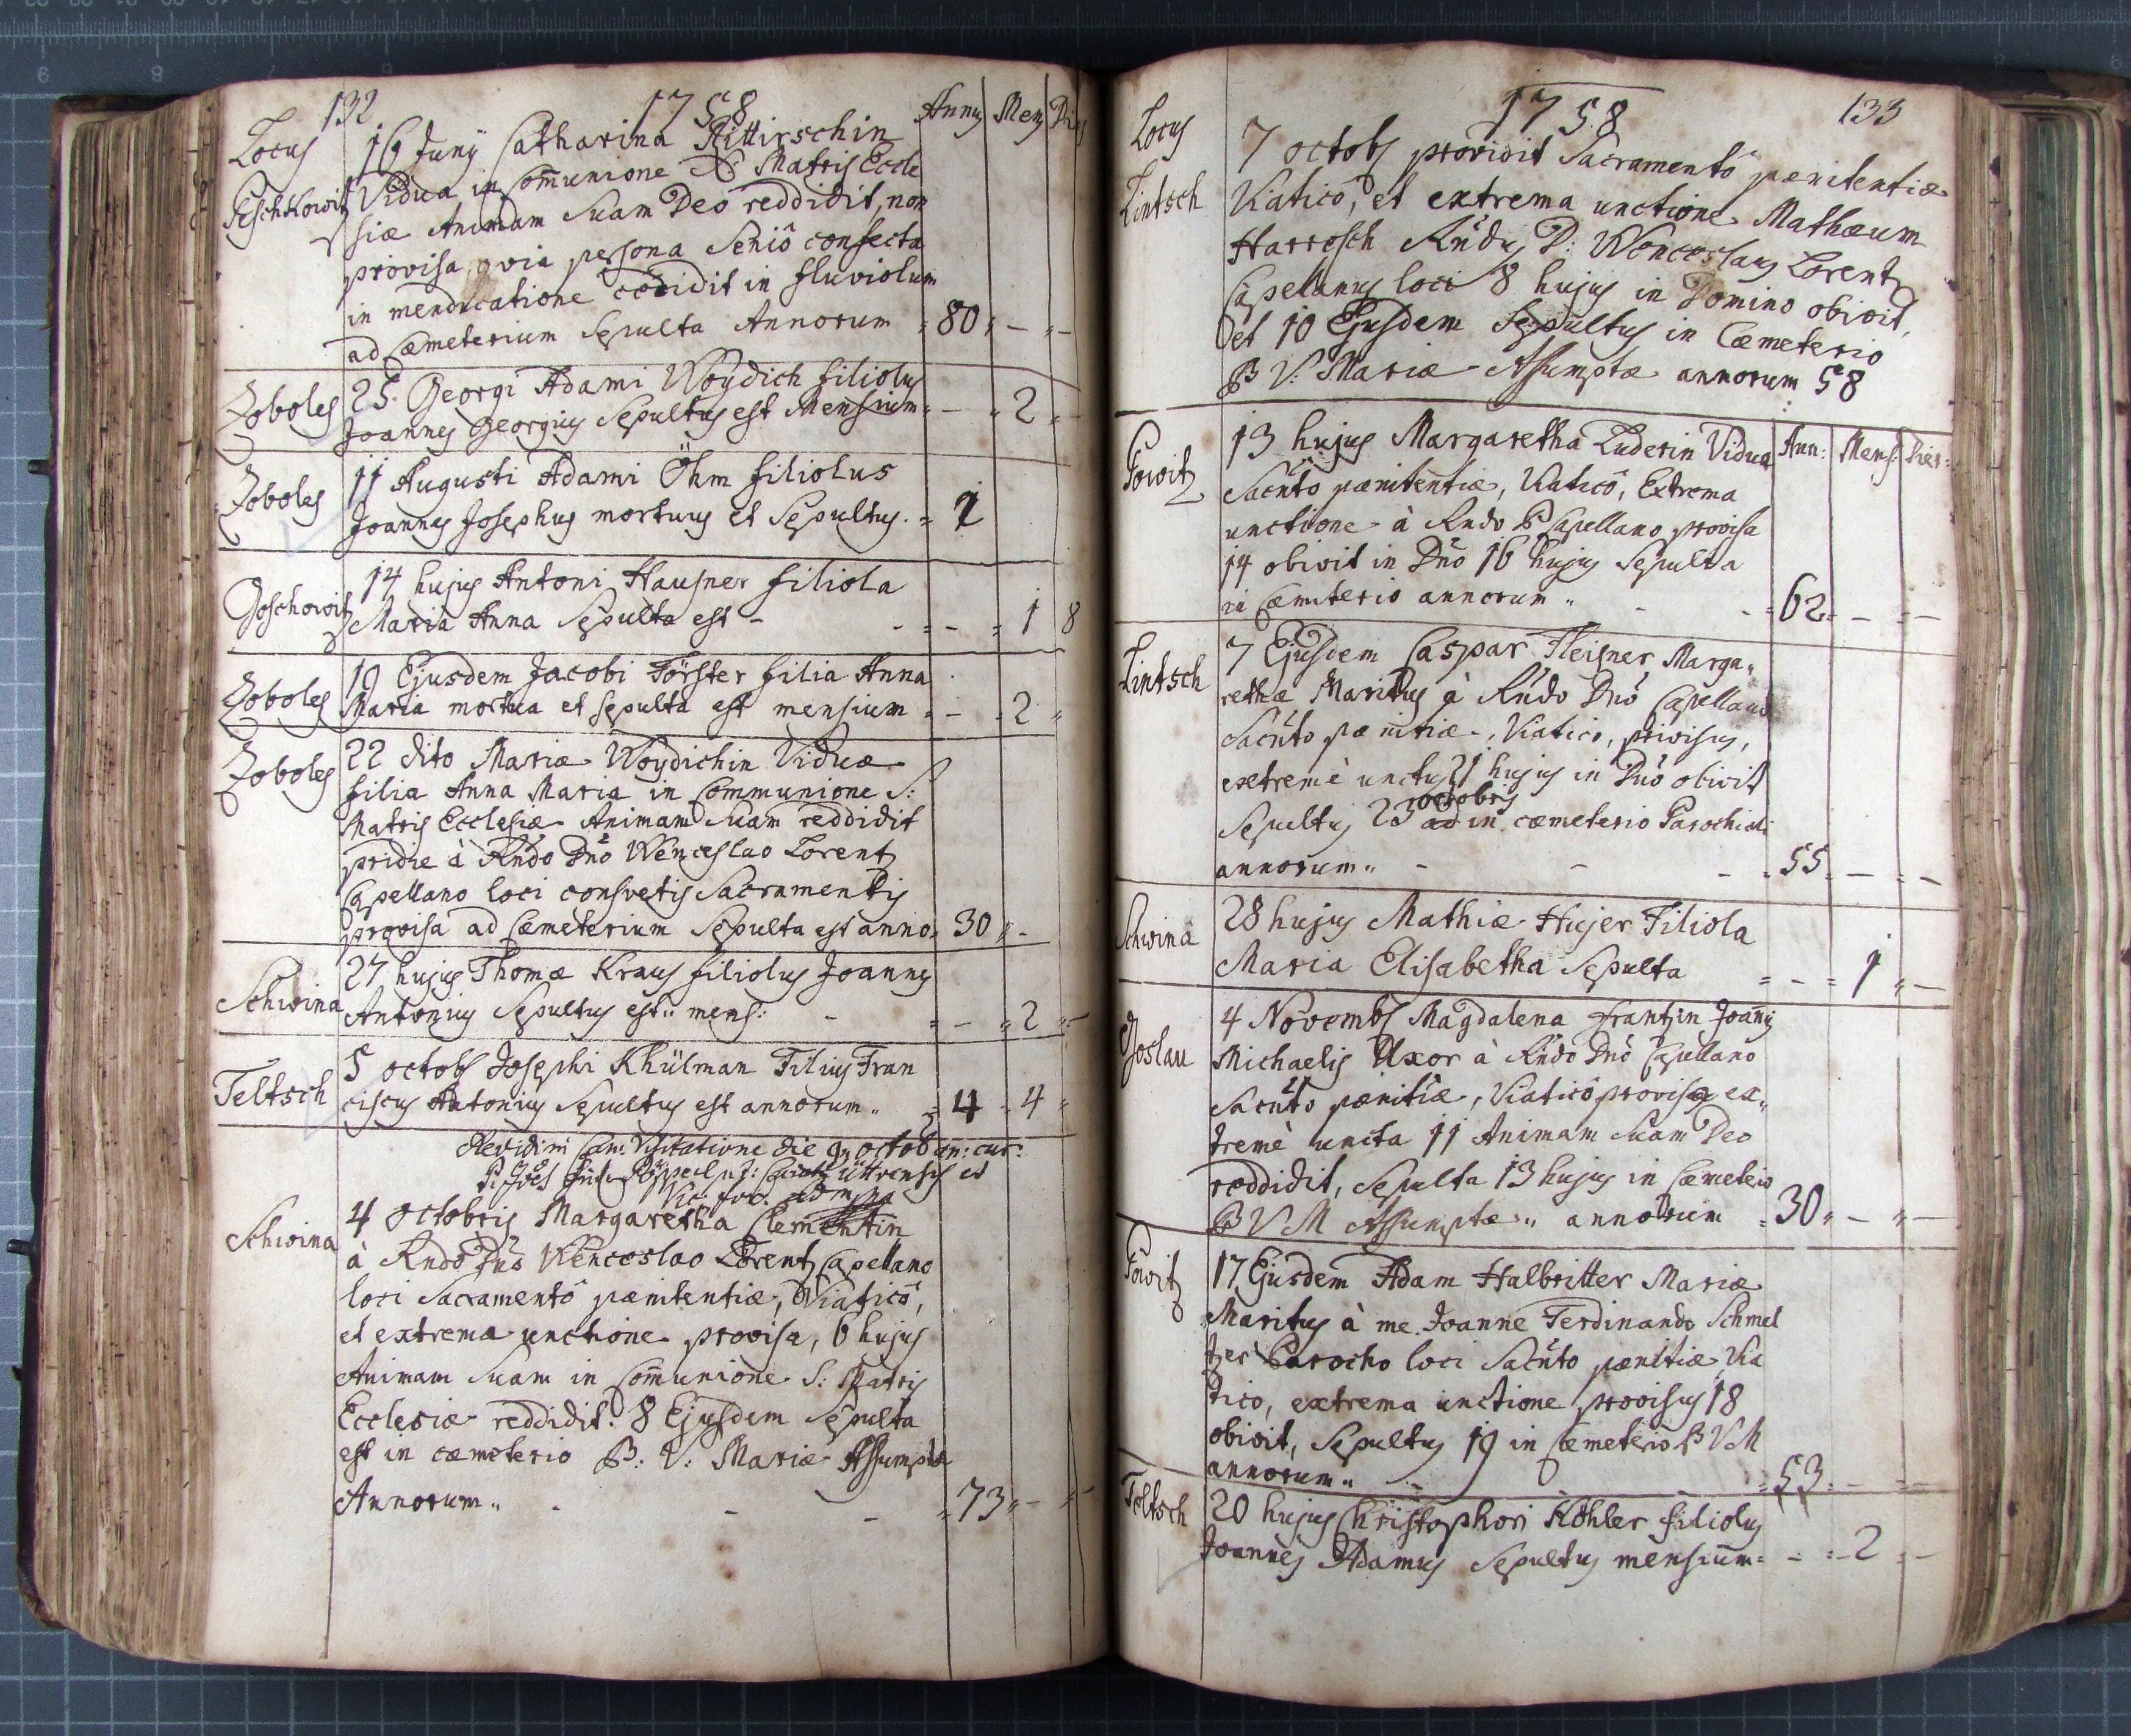 132 1758
Locus Annus Mens Dies
16 Junÿ Catharina Rittirschin
Peschkowitz Vidua in Com̄unione S: Matris Eccle
siæ Animam Suam Deo reddidit, non
provisa, qvia persona Seniô confecta
in mendicatione cecidit in fluviolum
ad Cæmeterium Sepulta Annorum = 80 " – " –
Zoboles 25. Georgi Adami Woÿdich filiolus
Joannes Georgius Sepultus est Mensium = – " 2 " –
Zoboles 11 Augusti Adami Öhm filiolus
Joannes Josephus mortuus et Sepultus. = 1
Goschowitz 14 hujus Antoni Hausner filiola
Maria Anna Sepulta est – – = – = 1 8
Zoboles 19 Ejusdem Jacobi Förster filia Anna
Maria mortua et sepulta est mensium = – = 2 "
Zoboles 22 dito Mariæ Woÿdichin Viduæ
filia Anna Maria in Communione S:
Matris Ecclesiæ Animam Suam reddidit
pridie à Rñdo Dñô Wenceslao Lorentz
Capellano loci consvetis Sacramentis
provisa ad Cæmeterium Sepulta est anno= 30 " –
Schwina 27 hujus Thomæ Kraus filiolus Joannes
Antonius Sepultus est " mens: – = – " 2 " –
Teltsch 5 octobs Josephi Khülman Filius Fran
ciscus Antonius Sepultus est annorum " = 4 = 4 "
Revidim Can: Visitatione die 9 octob an: cur:
Schwina 4 octobris Margaretha Clementin
à Rndo Dño Wenceslao Lorentz Capellano
loci Sacramentô pænitentiæ, Viaticô,
et extrema unctione provisa, 6 hujus
Animam Suam in Com̄unione S: Matris
Ecclesiæ reddidit. 8 Ejusdem Sepulta
est in cæmeterio B: V: Mariæ Assumptæ
Annorum " - – – = 73 " – " –
1758 133
Locus
Lintsch 7 octobs providit Sacramentô pænitentiæ
Viaticô, et extrema unctione Mathæum
Harrosch Rñdus D: Wenceslaus Lorentz
Capellanus loci 8 hujus in Domino obivit,
et 10 Ejusdem Sepultus in Cæmeterio
B V: Mariæ Assumptæ annorum 58
Ann: Mens: Dier:
Gowitz 13 hujus Margaretha Luderin Vidua
Sacñto pænitentiæ, Viaticô, Extrema
unctione à Rndo P Capellano provisa
14 obivit in Dño 16 hujus Sepulta
in Cæmeterio annorum " - - = 62 = – = –
Lintsch 7 Ejusdem Caspar Fleisner Marga"
rethæ Maritus à Rñdo Dñô Capellano
Sacñto pænitiæ, Viatico, privisus,
extremè unctus 21 hujus in Dño obivit
octobris
Sepultus 23 ad in cæmeterio Parochiali
annorum " - - – = 55 = – = –
Schwina 28 hujus Mathiæ Hujer Filiola
Maria Elisabetha Sepulta = – = 1 " –
Goslau 4 Novembs Magdalena Frantzin Joañis
Michaelis Uxor à Rñdo Dñô Capellano
Sacñto pænitiæ, Viaticô provisa ex"
tremè uncta 11 Animam Suam Deo
reddidit, Sepulta 13 hujus in Cæmeterio
B V M Assumptæ " annorum = 30 " – " –
Gowitz 17 Ejusdem Adam Halbritter Mariæ
Maritus à me Joanne Ferdinando Schmel
tzer Parocho loci Sacñto pænitiæ Via
tico, extrema unctione provisus 18
obivit, Sepultus 19 in Cæmeterio B V M
annorum " - = 53 = – = –
Teltsch 20 hujus Christophori Köhler filiolus
Joannes Adamus Sepultus mensium = – = 2 = –